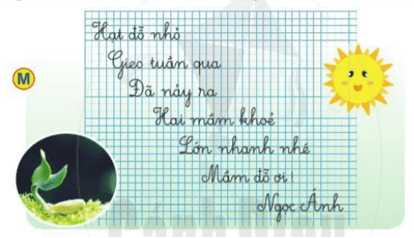 M
Hạt đỗ nhỏ
Gieo tuần qua
Đã nảy ra
Hai mầm khoẻ
Lớn nhanh nhé
Mầm đỗ ơi!
Ngọc Ánh